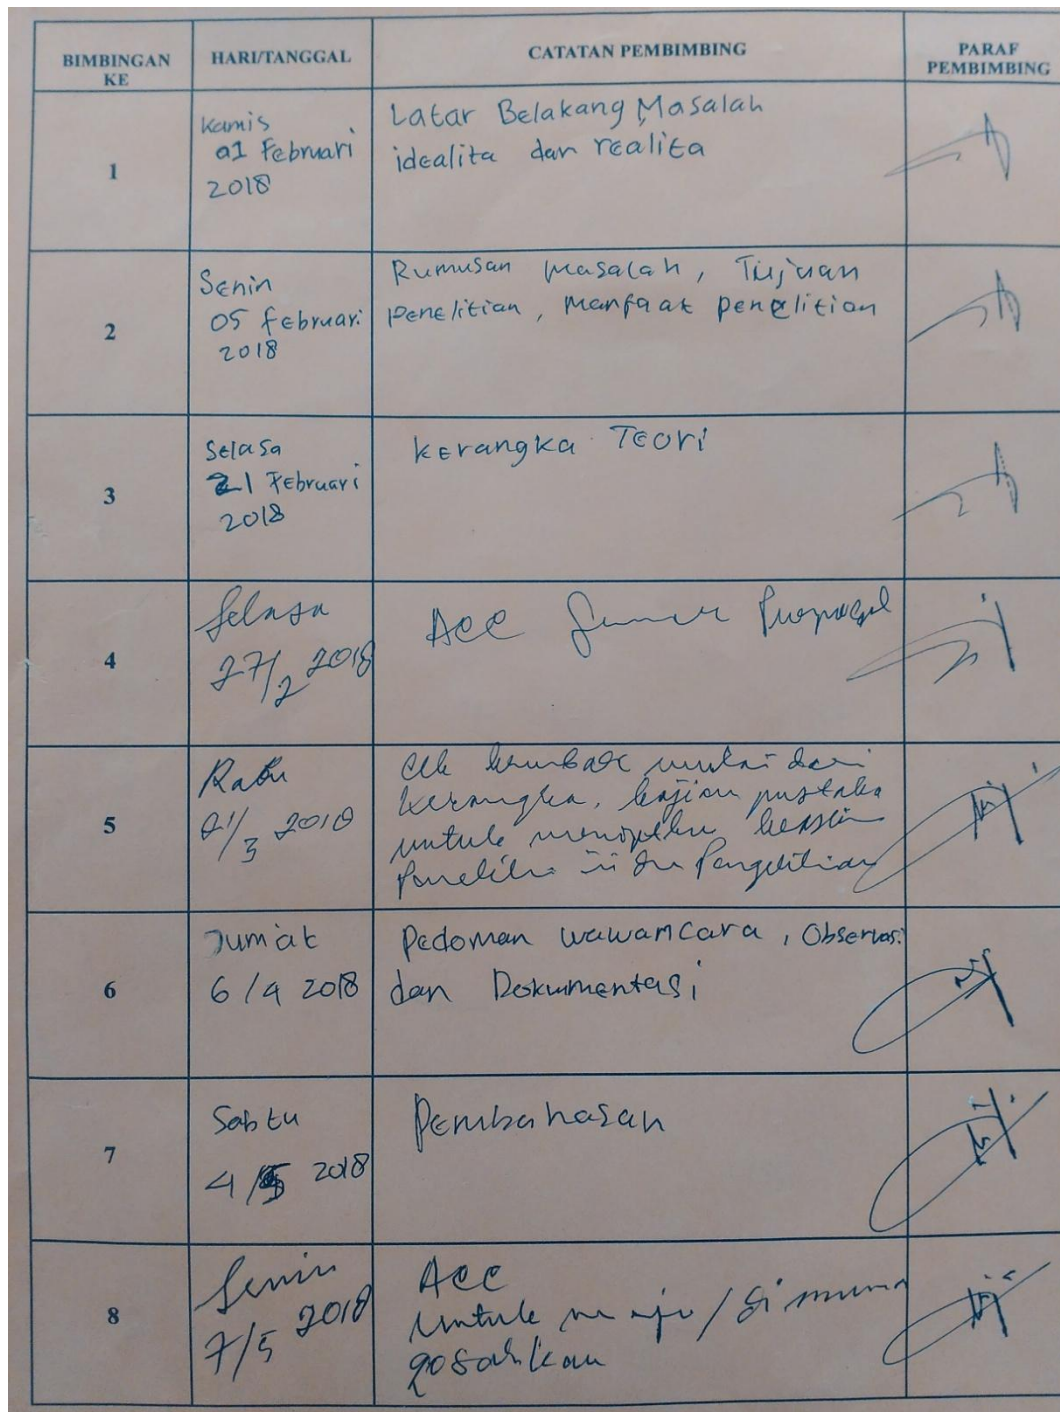 BIMBINGAN KE
HARI/TANGGAL
CATATAN PEMBIMBING
PARAF PEMBIMBING
1
Kamis
01 Februari
2018
Latar Belakang Masalah
idealita dan realita
2
Senin
05 Februari
2018
Rumusan Masalah, Tujuan
penelitian, Manfaat penelitian
3
Selasa
21 Februari
2018
kerangka Teori
4
Selasa
27/2 2018
ACC Proposal
5
Rabu
21/3 2018
cek kembali mulai dari
kerangka, kajian pustaka
untuk
6
Jumat
6/4 2018
Pedoman wawancara, Observasi
dan Dokumentasi
7
Sabtu
4/5 2018
Pembahasan
8
Senin
7/5 2018
ACC
Untuk maju /